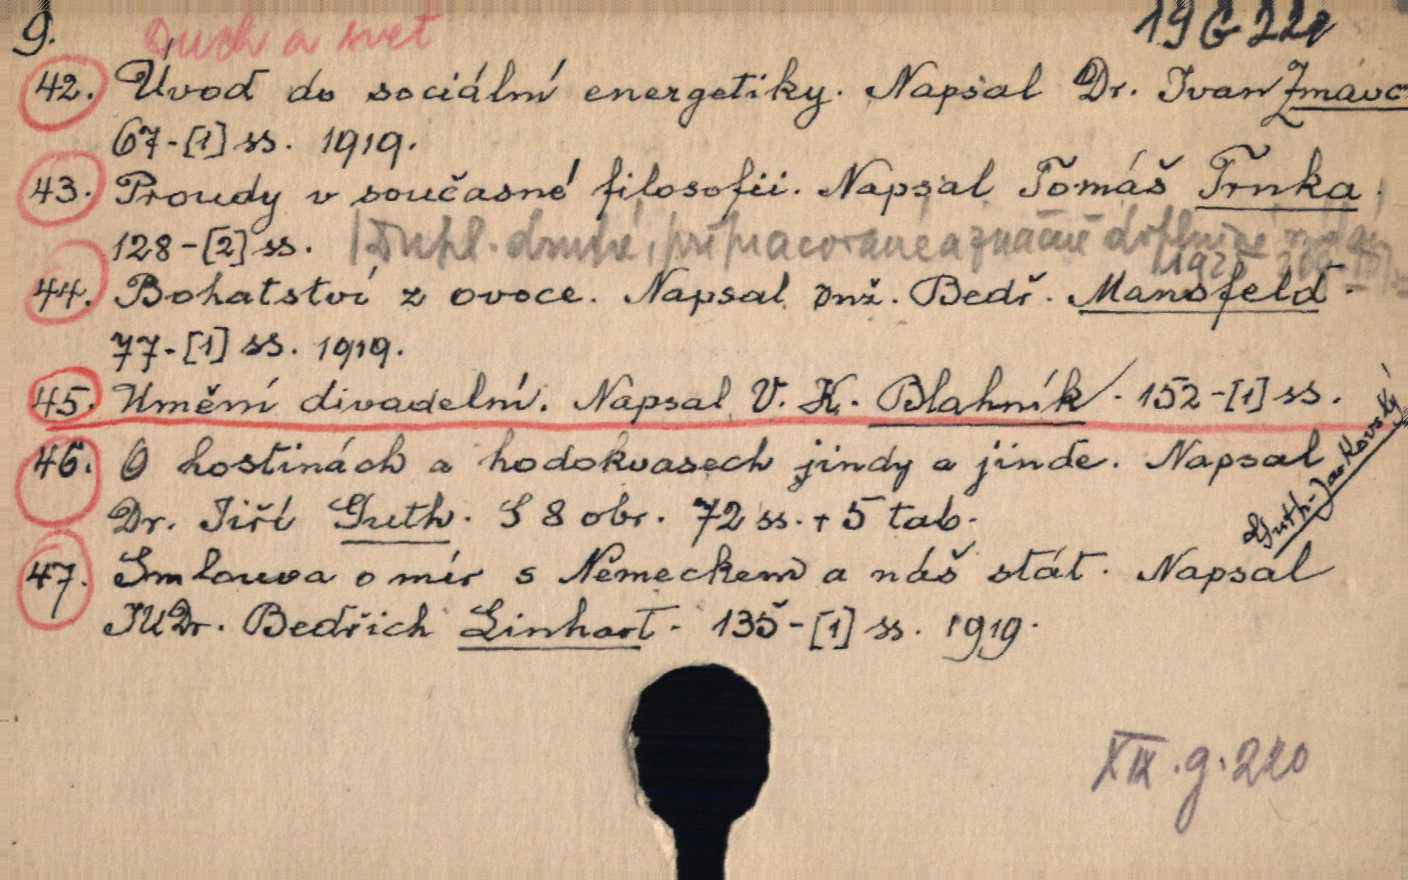 9.
Duch a svet
19 G 220
42. Úvod do sociální energetiky. Napsal Dr. Ivan Žmavc
67-[1] ss. 1919.
43. Proudy v současné filosofii. Napsal Tomáš Trnka.
128-[2] ss. | Dupl. druhé, přepracované a značně doplněné
1925
44. Bohatství z ovoce. Napsal Inž. Bedř. Mansfeld.
77-[1] ss. 1919.
45. Umění divadelní. Napsal V. K. Blahník. 152-[1] ss.
46. O hostinách a hodokvasech jindy a jinde. Napsal
Dr. Jiří Guth. S 8 obr. 72 ss. + 5 tab.
Guth-Jarkovský
47. Smlouva o mír s Německem a náš stát. Napsal
JUDr. Bedřich Linhart. 135-[1] ss. 1919.
XIX.g.220